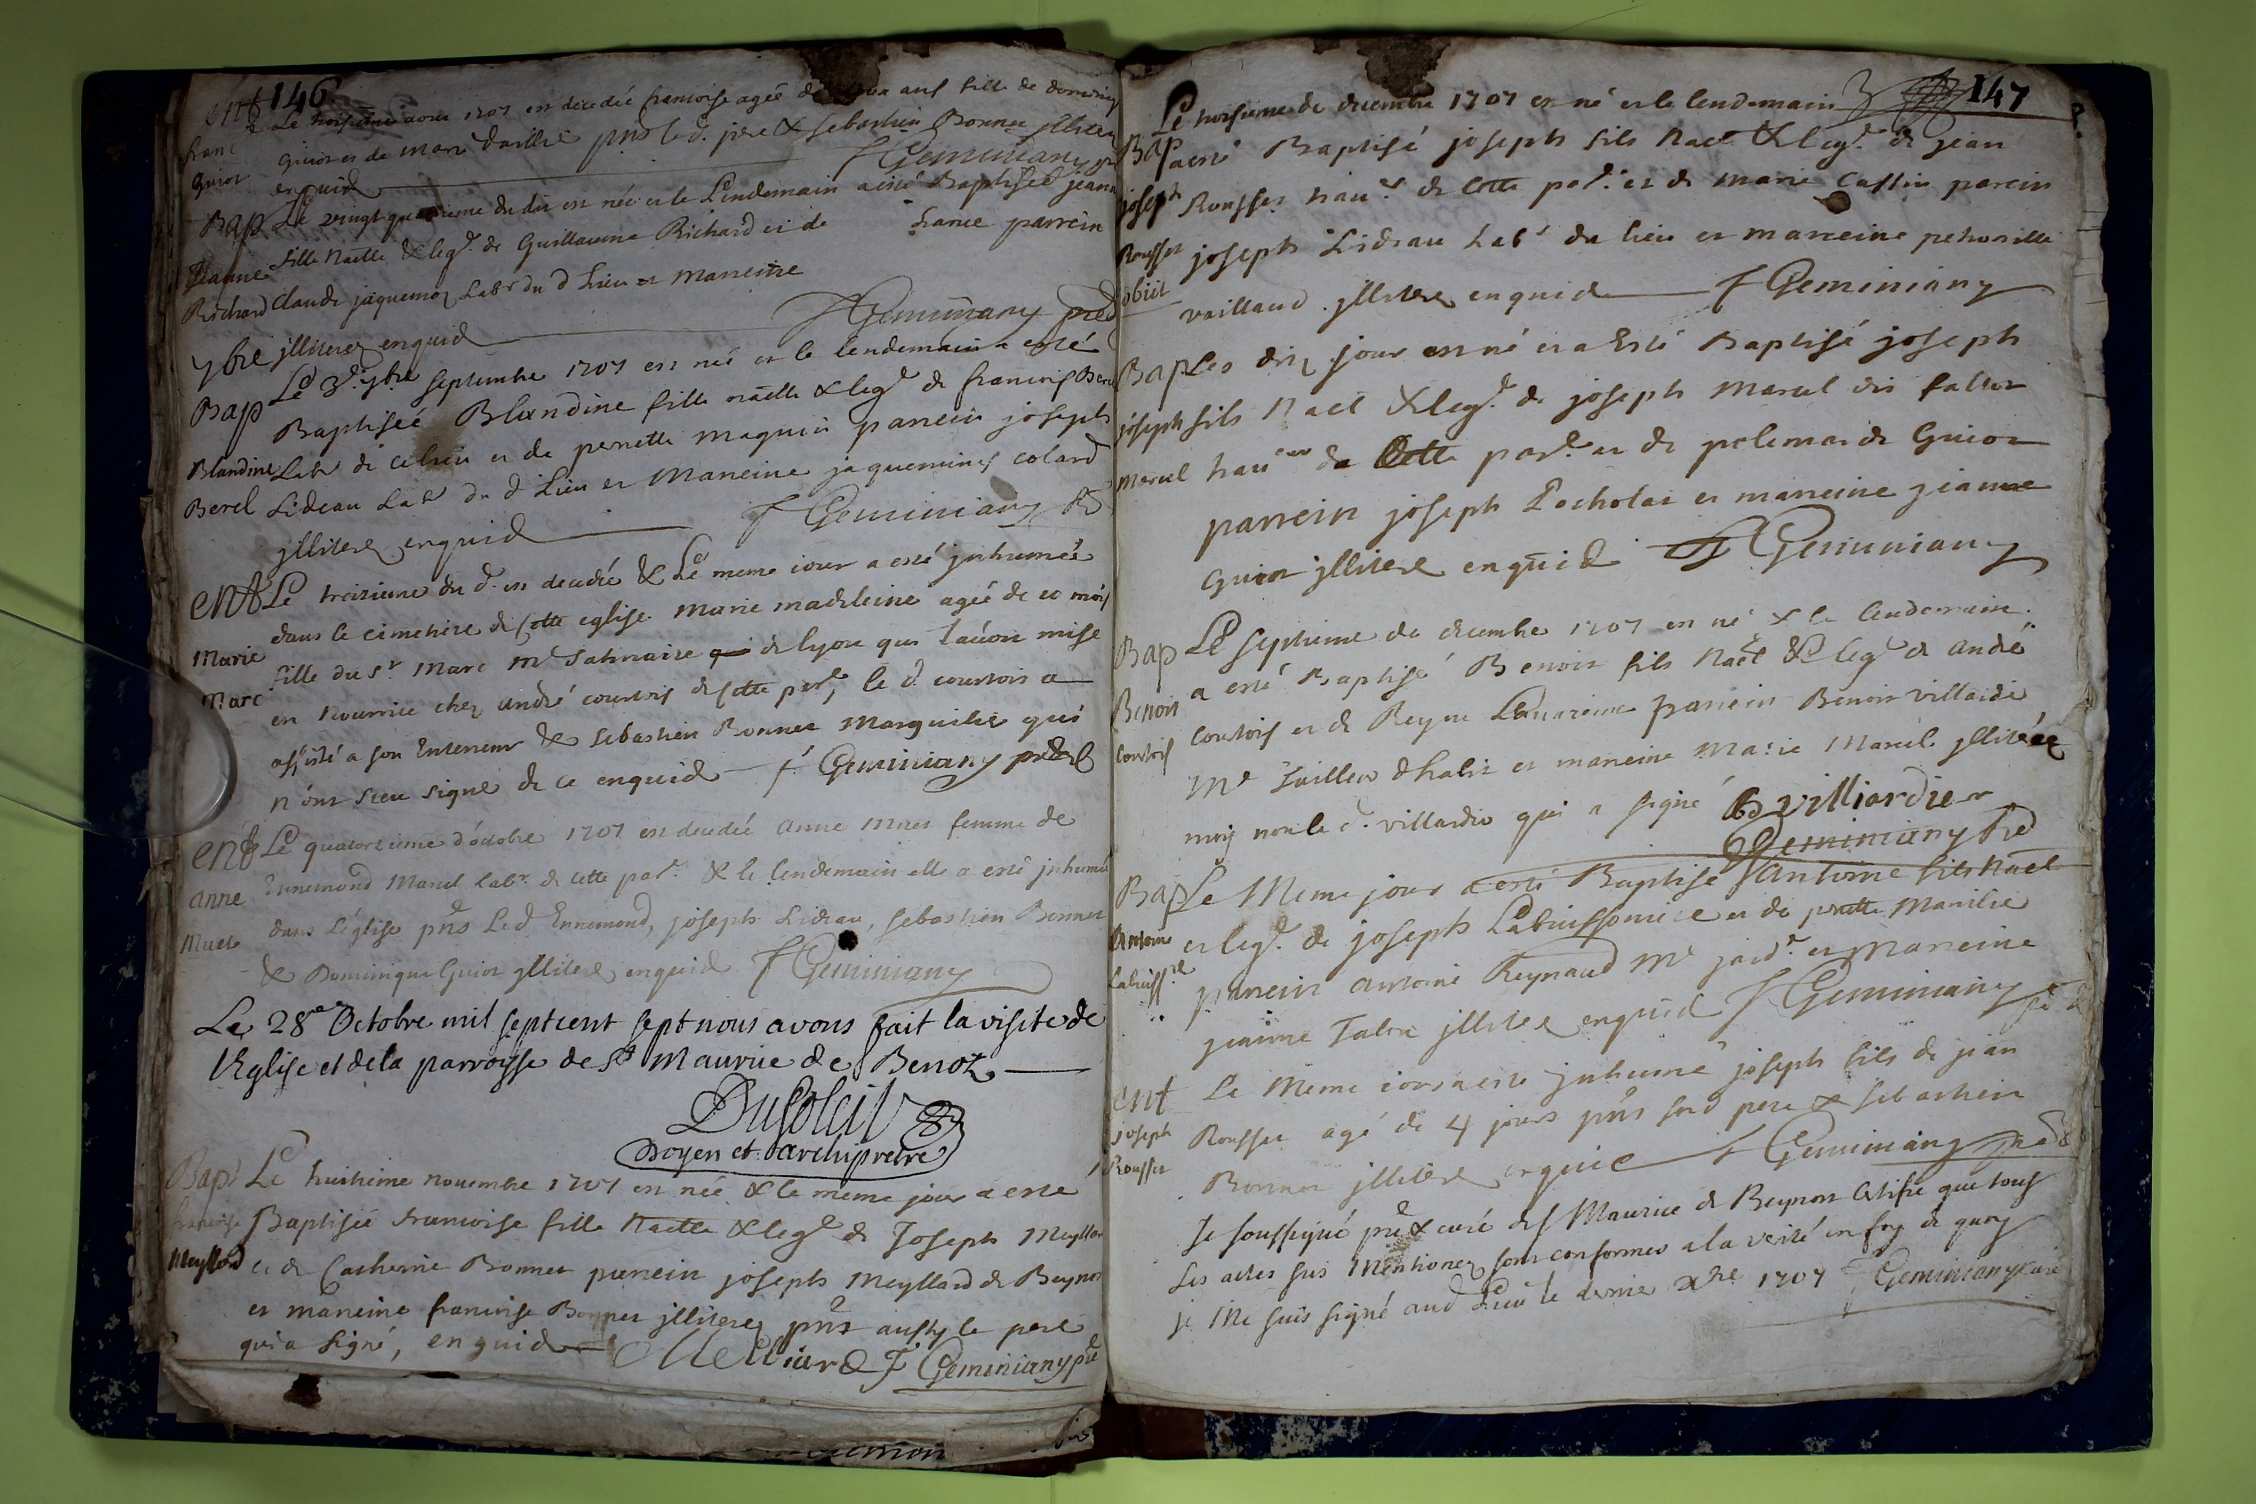 146
ent
Le troisieme aout 1707 est decedée francoise agée de deux ans fille de dominiq
franc
guiot et de marie pns led. pere & sebastien Bonnet jlliterez
guiot
enquid f Geminiany
Bap Le vingt quatrieme du dit est née et le Lendemain a esté Baptiseé jeann
Jeanne fille Naelle & leg.e de Guillaume Richard et de france parrein
Richard Claude jaquemoz Labr du d Lieu et Mareine
7bre jlliterez enquid f Geminiany
Le 3e 7bre septembre 1707 est née et le lendemain a esté
Bap Baptiseé Blandine fille naelle & leg.e de francois Berel
Blandine Labr de ce lieu et de pernette maguin parein joseph
Berel Lideau Labr du d Lieu et Mareine jaquemine colard
jlliterez enquid f Geminiany
ent Le treizieme du d. est decedée & Le meme iour a esté jnhumeé
dans le cimetiere de Cette eglise Marie madeleine ageé de mois
Marie fille du Sr Marc Me Satinaire de lyon qui lavoit mise
Marc en Nourrice chez andré courtois de Cette par.e, le d. courtois a
assisté a son Enterrem & Sebastien Bonnet Marguilier qui
n'ont sceu signer de ce enquid f Geminiany
ent Le quatorzieme d'octobre 1707 est decedée anne Muet femme de
anne Ennemond Marcel labr. de cette par.e & le lendemain elle a esté jnhumé
Muet dans L'église pns Led Ennemond, joseph Lideau, sebastien Bonnet
& Dominique Guiot jlliterez enquid f Geminiany
Le 28me Octobre mil sept cent sept nous avons fait la visite de
l'Eglise et de la parroysse de St Maurice de Benot
DuSoleil
Doyen et archipretre
Bap Le huitieme novembre 1707 est née & le meme jour a esté
francoise Baptiseé francoise fille Naelle & leg.e de Joseph Meyllar
Meyllard et de Catherine Bonnet parein joseph Meyllard de Beynot
et mareine francoise Bonnet jlliterez pns aussy le pere
qui a signé, enquid Melliard f Geminiany pre
147
Le troisieme de decembre 1707 est né et le lendemain
Bap a esté Baptisé joseph fils Nael & leg.e de jean
joseph Rousset de Cette par.e et de marie Castin parein
Rousset joseph Lideau Labr du lieu et mareine petronille
obiit vaillaud jlliterez enquid f Geminiany
Bap Les dix jour est né et a Esté Baptisé joseph
joseph fils Nael & leg.e de joseph Marcel dit
Marcel de Cette par.e et de Guiot
parrein joseph Pochola et mareine jeanne
Guiot jlliterez enquid f Geminiany
Bap Le septieme de decembre 1707 est né & le lendemain
Benoit a esté Baptisé Benoit fils Nael & leg.e de andré
Courtois Courtois et de Reyne parein Benoit villardié
Me Tailleur d'habit et mareine Marie Marcel jlliteréé
mais non le d. villardie qui a signé B villiardier
f Geminiany pre
Bap Le Meme jour a esté Baptisé antoine fils Nael
antoine et leg.e de joseph Labuissonniere et de pnette Manilie
Labuiss.re parrein antoine Reynaud Me jard.r et Mareine
jeanne Talon jlliterez enquid f Geminiany pre
ent Le Meme iour a esté jnhumé joseph fils de jean
joseph Rousset agé de 4 jours pns sond pere & sebastien
Rousset Bonnet jlliterez enquid f Geminiany
Je soussigné pre & curé de St Maurice de Beynost Certifie que tous
Les actes sus Mentionez sont conformes a la verité en foy de quoy
je Me suis signé aud Lieu le dernier Xbre 1707 f Geminiany curé